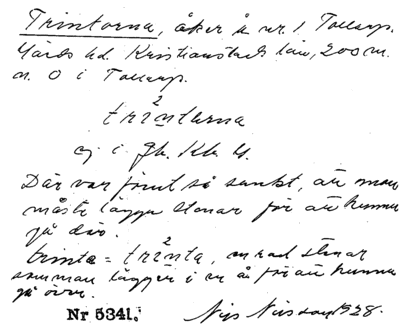 Trintorna, åker å nr. 1 Tollarp.
Gärds hd. Kristianstads län, 200 m.
n. O i Tollarp.
2
trintarna
ej i Jb. Kb. U.
Där var förut så sankt, att man
måste lägga stenar för att kunna
gå där.
2
trinta = trinta, en rad stenar
som man lägger i en å för att kunna
gå över.
Nr 5341. Nils Nilsson 1928.